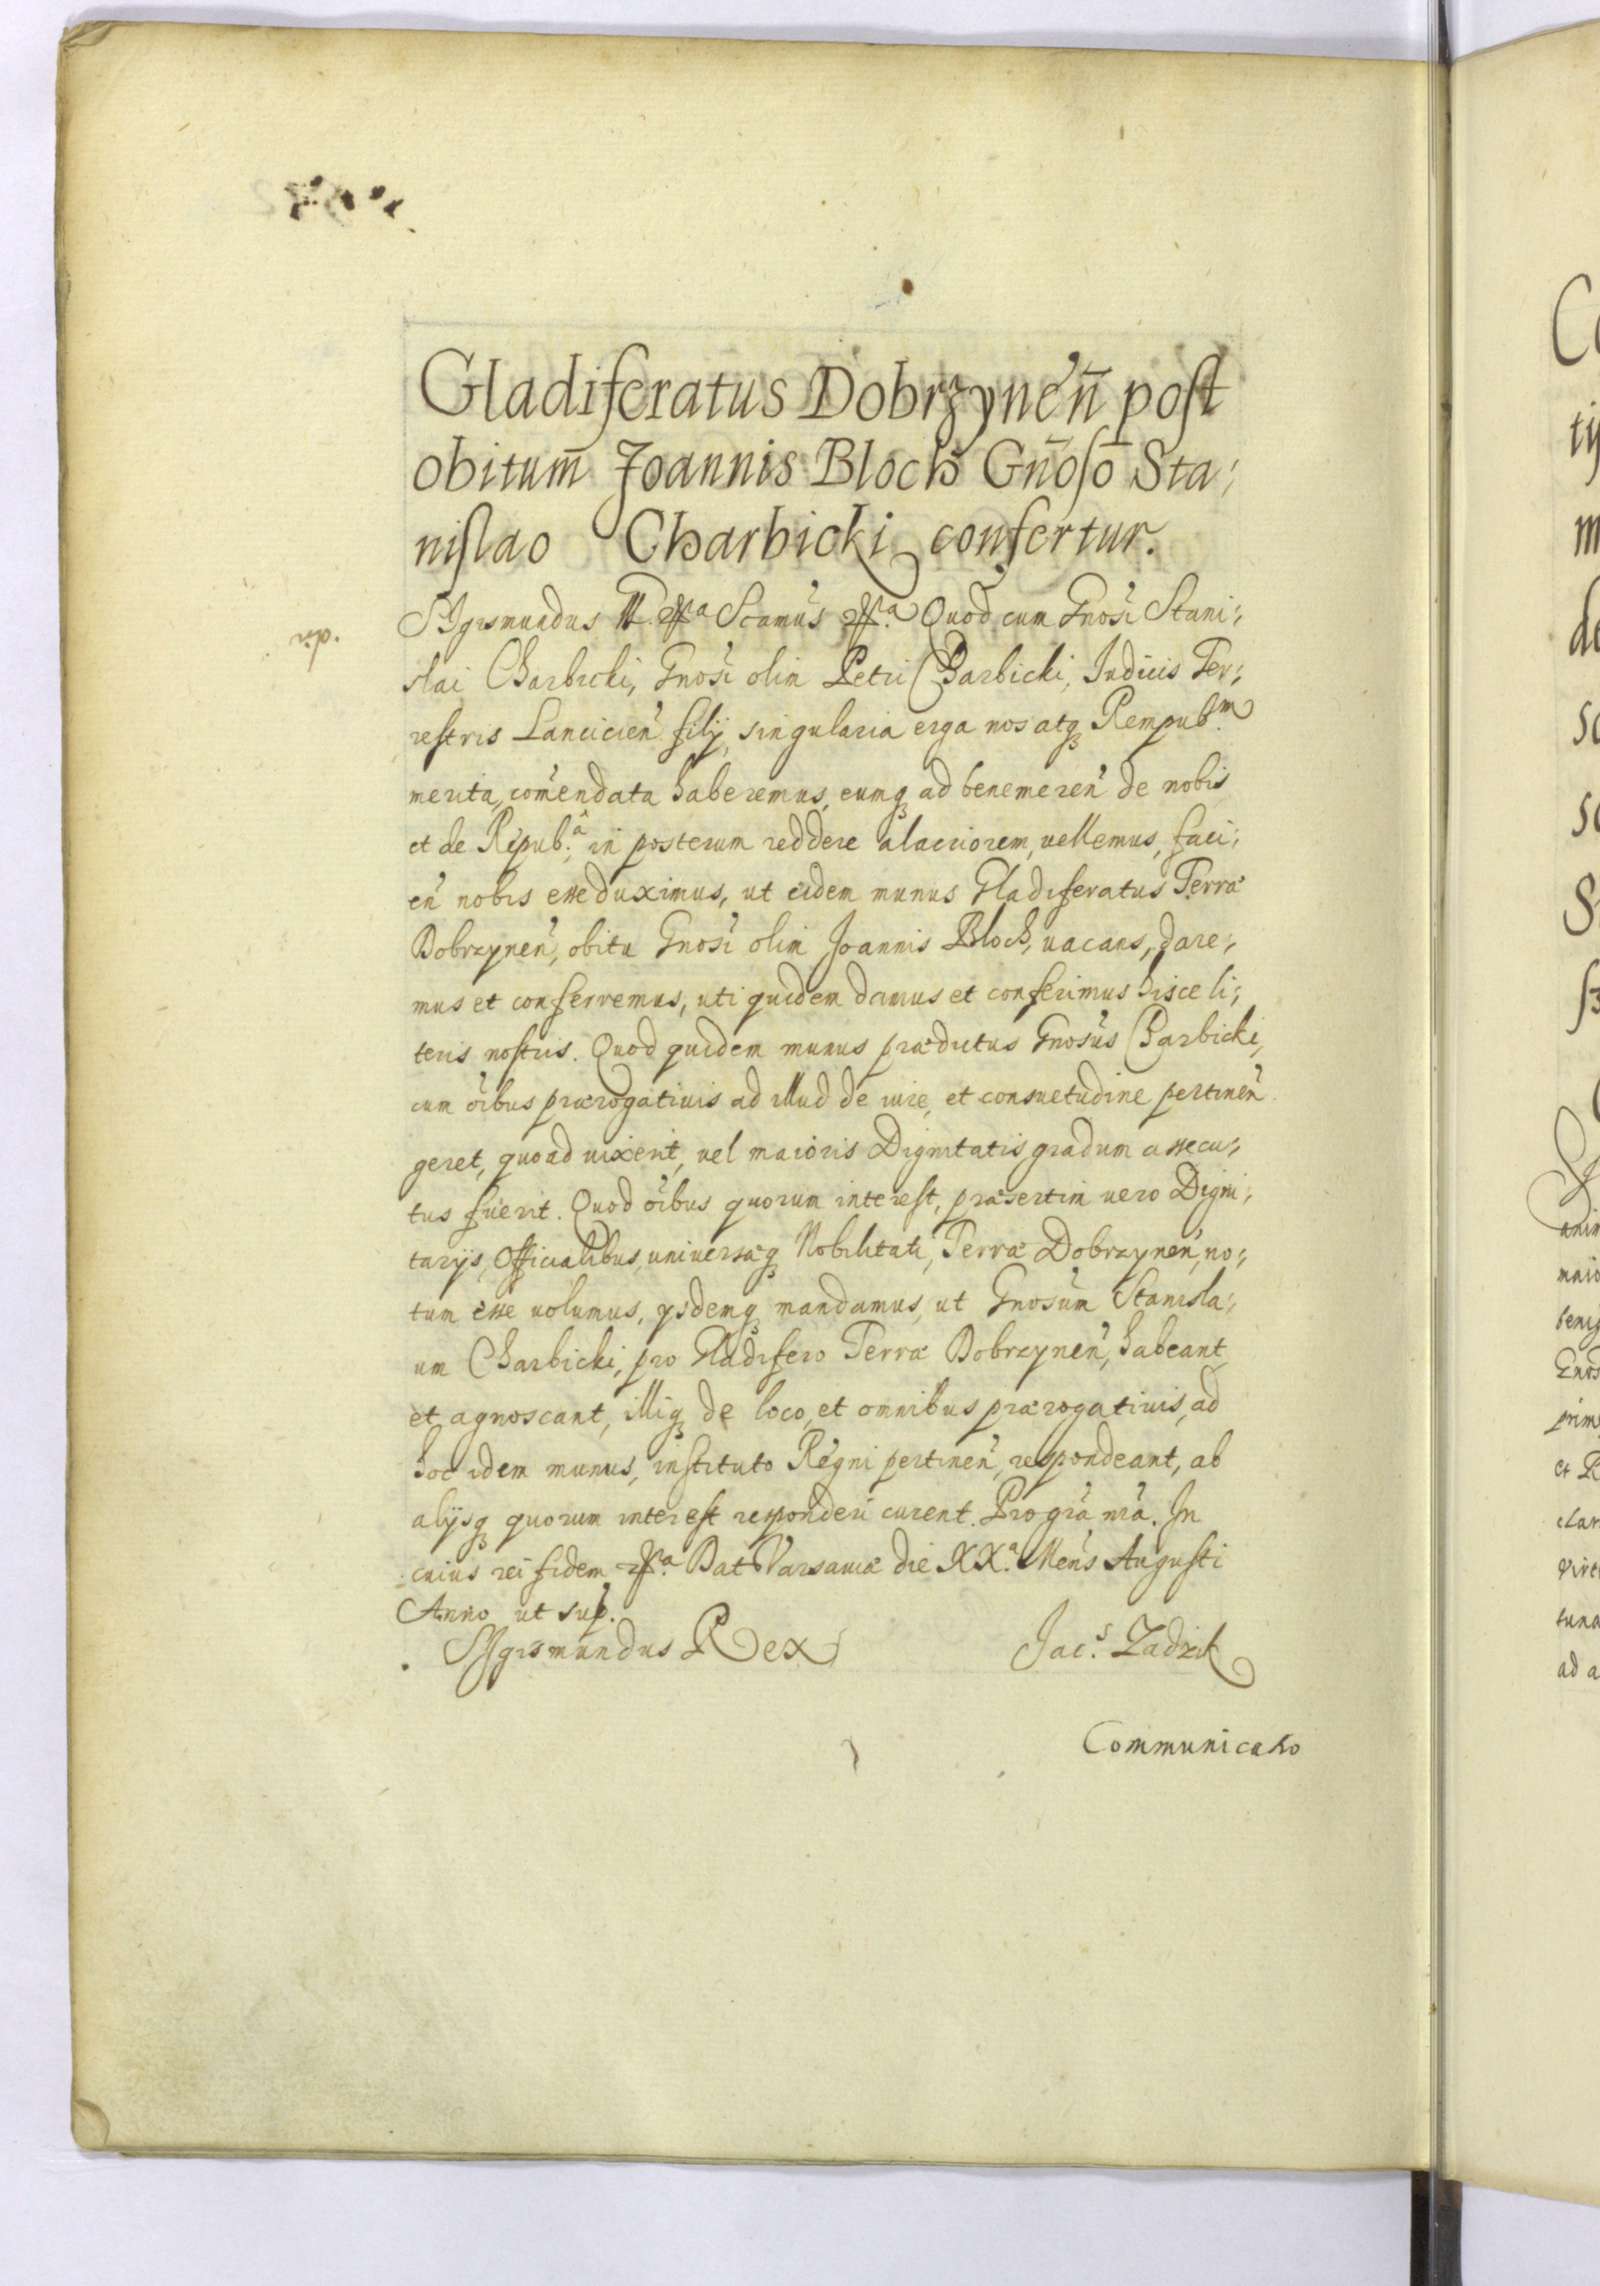 Gladiferatus Dobrzynen̄ post
obitum̄ Joannis Bloch Gn̄oso Sta;
nislao Charbicki confertur.
Sigismundus III. &a Scamus &a. Quod cum Gnosi Stani;
slai Charbicki, Gnosi olim Petri Charbicki, Iudicis Ter;
restris Lancicien filij, singularia erga nos atq Rempub.m
merita, comendata haberemus, eumq ad benemeren de nobis
et de Repub.a, in posterum reddere alacriorem, vellemus, faci;
en nobis esse duximus, ut eidem munus Gladiferatus Terræ
Dobrzynen, obitu Gnosi olim Joannis Bloch, uacans, dare;
mus et conferremus, uti quidem damus et conferimus hisce li;
teris nostris. Quod quidem munus prædictus Gnosus Charbicki,
cum oibus prærogatiuis ad illud de iure, et consuetudine pertinen
geret, quoad uixerit, uel maioris Dignitatis gradum assecu;
tus fuerit. Quod oibus quorum interest, præsertim uero Digni;
tarijs, Officialibus, uniuersæq Nobilitati, Terræ Dobrzynen, no;
tum esse uolumus, ysdemq mandamus, ut Gnosum Stanisla;
um Charbicki, pro Gladifero Terræ Dobrzynen, habeant
et agnoscant, illiq de loco, et omnibus prærogatiuis, ad
hoc idem munus, instituto Regni pertinen, respondeant, ab
alijsq quorum interest responderi curent. Pro gra nra. In
cuius rei fidem &a. Dat Varsauiæ die XX.a Mens Augusti
Anno ut sup.
Sigismundus Rex
Jac.s Zadzik
Communicatio